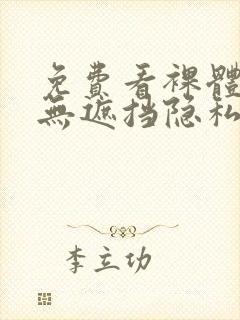 免費看裸體
無遮挡隐私
李立功